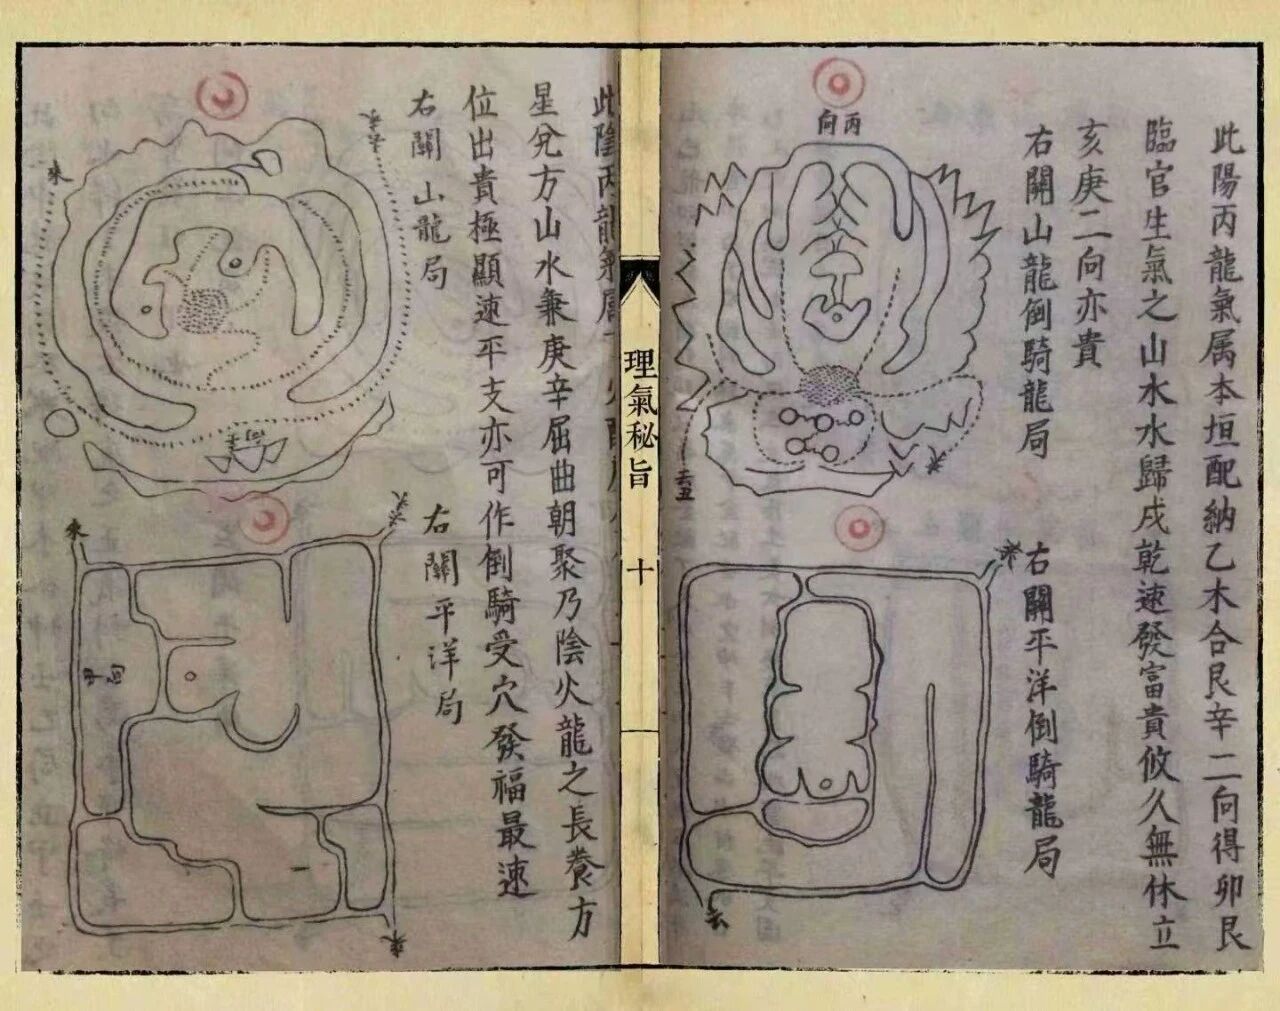 此陽丙龍氣属本垣配納乙木合艮辛二向得卯艮
臨官生氣之山水水歸戌乾速發富貴攸久無休立
亥庚二向亦貴
右關山龍倒騎龍局
右關平洋倒騎龍局
丙向
來
去丑
來
去
理氣秘旨
十
此陰丙龍氣属
星兌方山水兼庚辛屈曲朝聚乃陰火龍之長養方
位出貴極顯速平支亦可作倒騎受穴發福最速
右關山龍局
右關平洋局
來
來
來